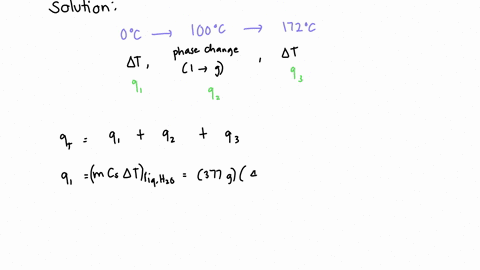 Solution:
0°C → 100°C → 172°C
ΔT, phase change, ΔT
(l → g)
q₁ q₂ q₃
qT = q₁ + q₂ + q₃
q₁ = (m Cs ΔT)liq, H₂O = (377 g)(4